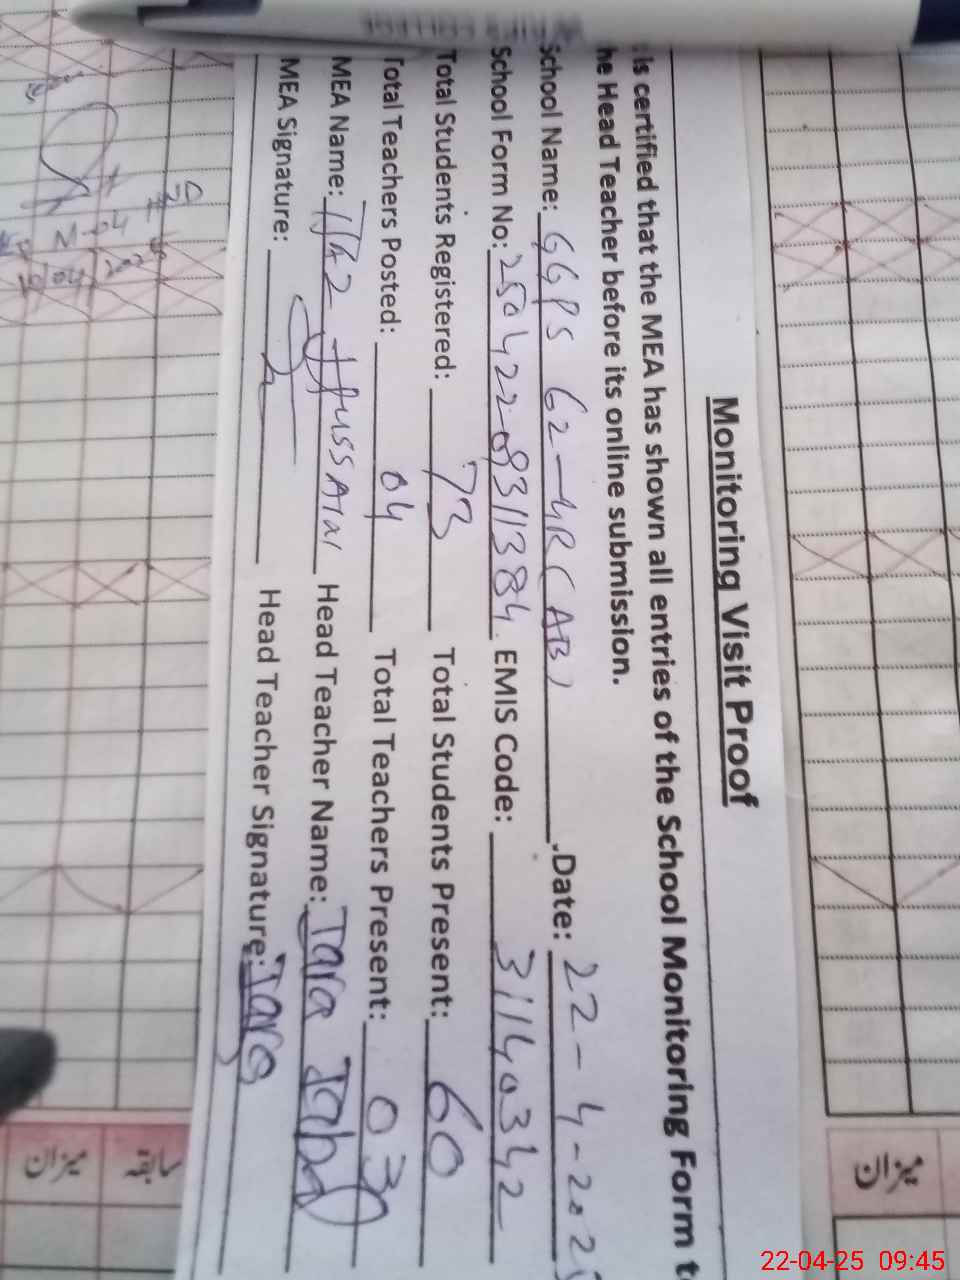 Monitoring Visit Proof
is certified that the MEA has shown all entries of the School Monitoring Form t
he Head Teacher before its online submission.
School Name: GGPS 62-4R (AB) Date: 22-4-202
School Form No: 2504220 8311384 EMIS Code: 31140342
Total Students Registered: 73 Total Students Present: 60
Total Teachers Posted: 04 Total Teachers Present: 03
MEA Name: Hussain Head Teacher Name: Tara
MEA Signature: Head Teacher Signature: Tara
سابقہ
میزان
میزان
22-04-25 09:45